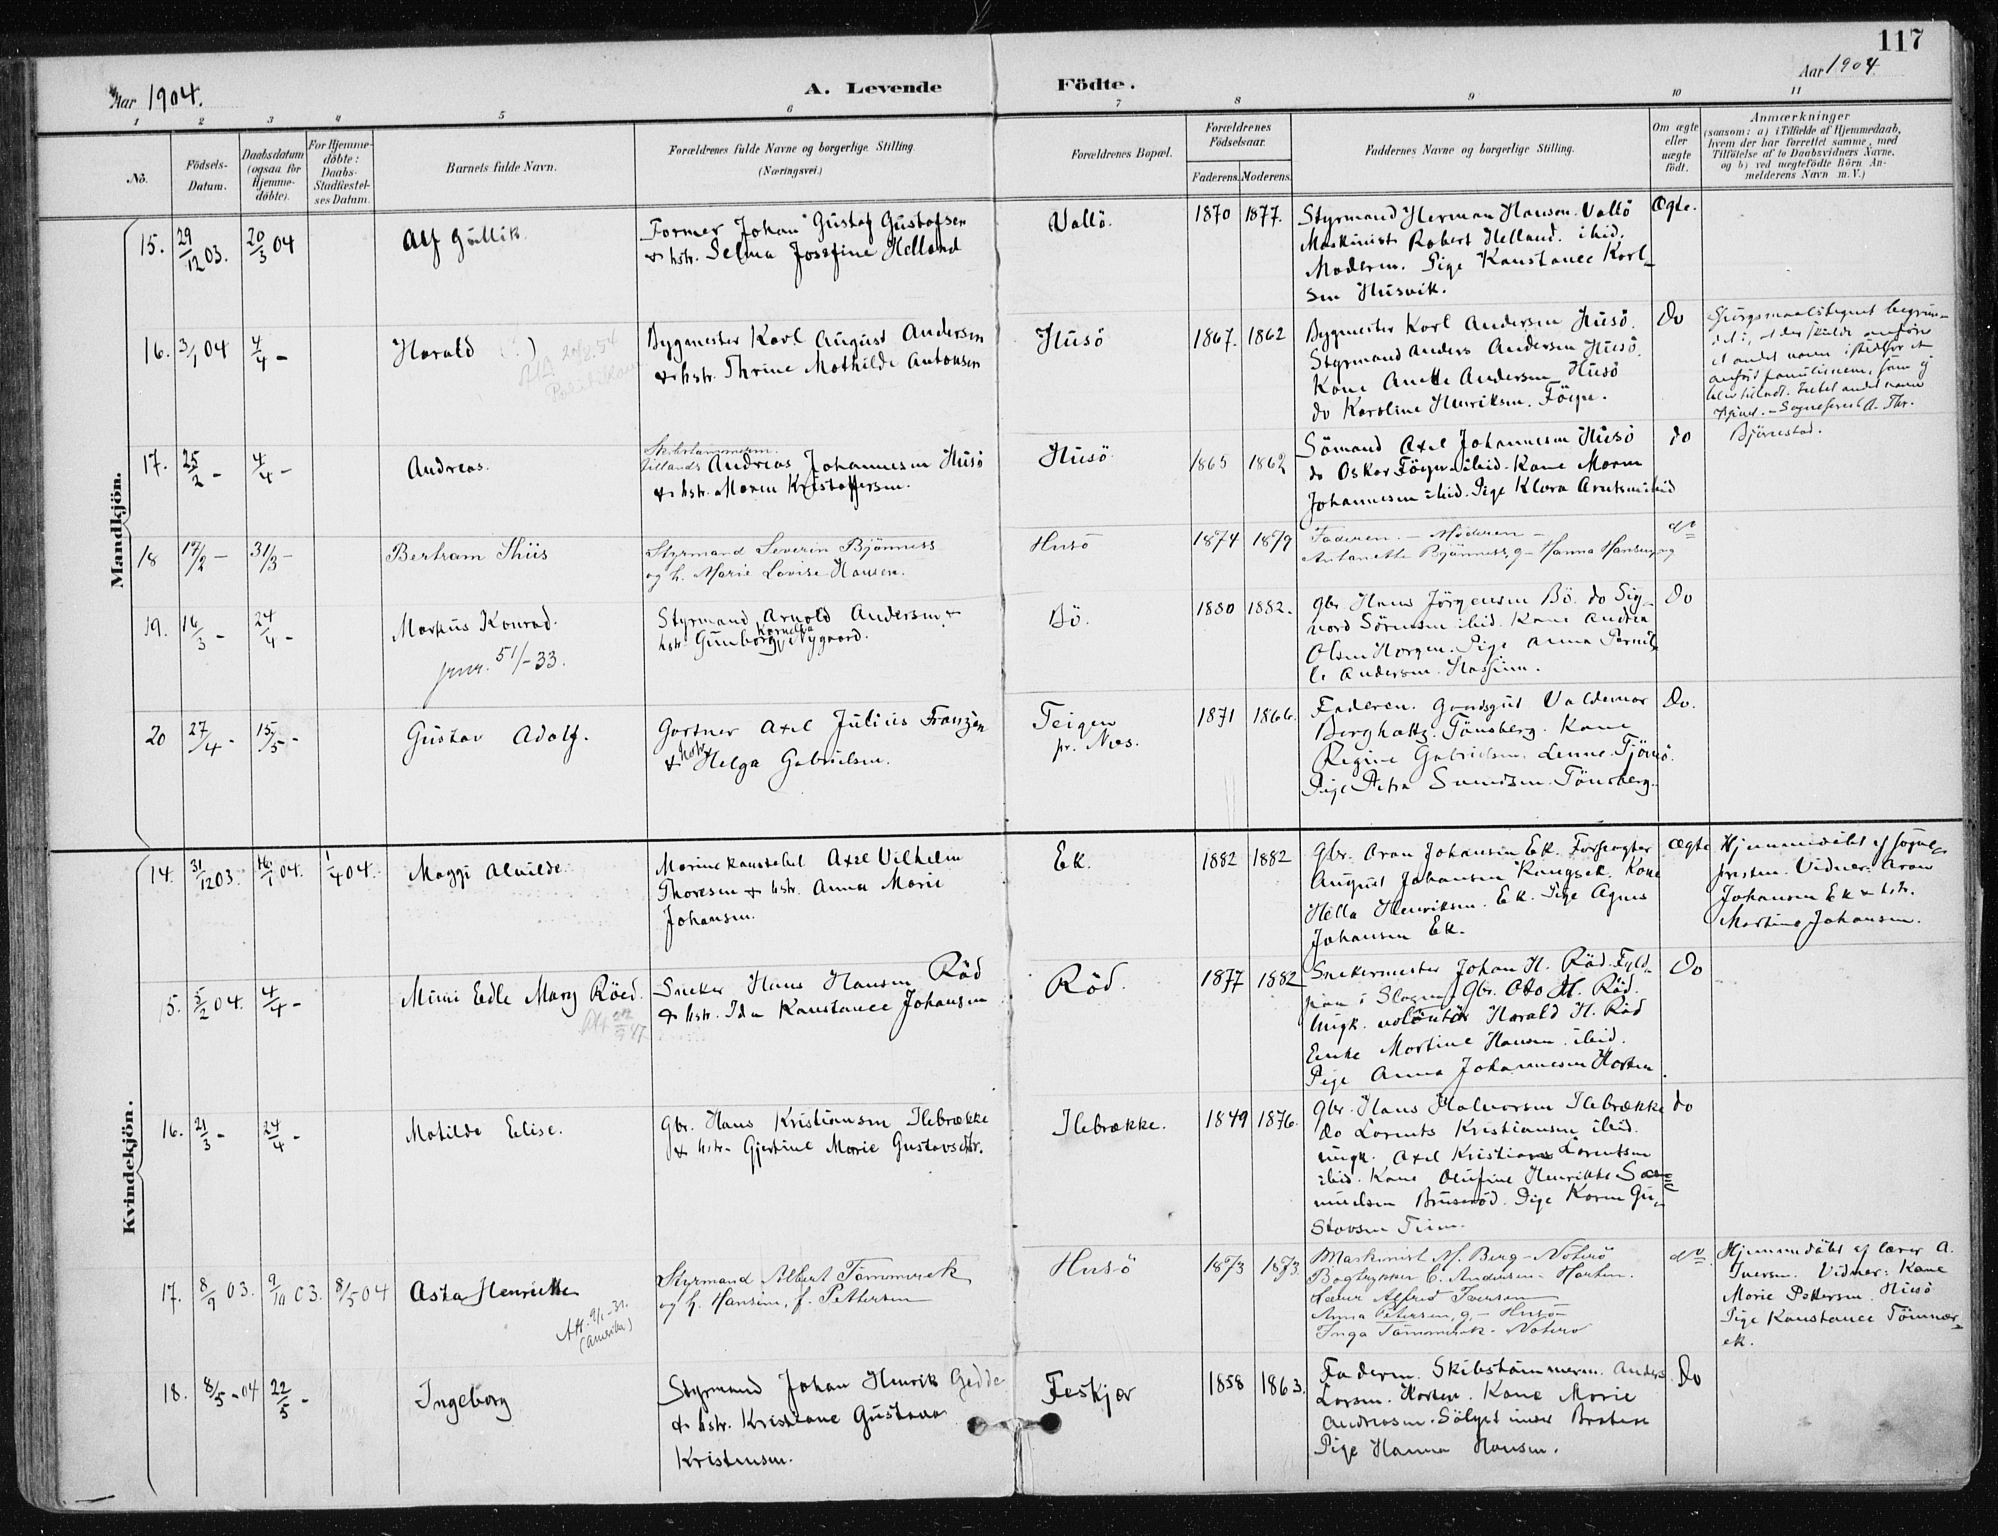 117
Aar 1904.
A. Levende Födte.
Aar 1904.
1 2 3 4 5 6 7 8 9 10 11
No.
Födsels-Datum.
Daabsdatum (ogsaa for Hjemme-døbte).
For Hjemme-døbte: Daabs-Stadfæstel-ses Datum.
Barnets fulde Navn.
Forældrenes fulde Navne og borgerlige Stilling.
(Næringsvei.)
Forældrenes Bopæl.
Forældrenes Födselsaar.
Faderens. Moderens.
Faddernes Navne og borgerlige Stilling.
Om ægte eller uægte født.
Anmærkninger
(saasom: a) i Tilfælde af Hjemmedaab, hvem der har forrettet samme, med Tilföielse af to Daabsvidners Navne, og b) ved uægtefödte Börn Anmelderens Navn m. V.)
Mandkjön.
15. 29/12 03. 20/3 04
Alf Gullik.
Former Johan Gustaf Gustafsen
& hstr. Selma Josefine Helland
Vallö.
1870 1877.
Styrmand Herman Hansen. Vallö
Maskinist Robert Helland. ibid.
Moderen. Pige Konstance Karl-
sen Husvik.
Ægte.
16. 3/1 04 4/4 -
Harald
Bygmester Karl August Andersen
& hstr. Thrine Mathilde Antonsen
Husö
1867. 1862
Bygmester Karl Andersen Husö.
Styrmand Anders Andersen Husö.
Kone Anette Andersen Husö
do Karoline Henriksen. Föyn.
Do
Spörgsmaalstegnet begrun-
det i, at der skulde anföres
et andet navn istedfor et
anført familienavn, som ej
blev tilladt. Intet andet navn
Sogneprest A. Thr.
Björnestad.
17. 25/2 - 4/4 -
Andreas.
Skibstømmerm.
Andreas Johannesen Husö
& hstr. Maren Kristoffersen.
Husö.
1865 1862
Sömand Axel Johannesen Husö
do Oskar Föyn ibid. Kone Maren
Johannesen ibid. Pige Klara Arntsen ibid
do
18 17/2 - 31/3 -
Bertram Thiis
Styrmand Severin Bjönness
og h. Marie Lovise Hansen.
Husö
1874 1879
Faderen. - Moderen -
Antonette Bjönness, g - Hanna Hansen, ug
do
19. 16/3 - 24/4 -
Markus Konrad.
51/-33.
Styrmand Arnold Andersen &
hstr. Gunborg Kornelia Nygaard.
Bö.
1880 1882.
Gbr. Hans Jörgensen Bö. do Sig-
vard Sörensen ibid. Kone Andrea
Olsen Horgen. Pige Anna Pernil-
le Andersen.
Do
20 27/4 - 15/5 -
Gustav Adolf.
Gartner Axel Julius Franzen
& hstr. Helga Gabrielsen.
Teigen
pr. Næs.
1871 1866.
Faderen. Valdemar
Tönsberg. Kone
Regine Gabrielsen. Tjömö.
Pige Petra Tönsberg.
Do.
Kvindekjön.
14. 31/12 03. 16/1 04. 1/4 04.
Maggi Alvilde.
Marinekonstabel Axel Vilhelm
Thoresen & hstr. Anna Marie
Johansen.
Ek.
1882 1882
Gbr. Aron Johansen Ek. Forpagter
August Johansen Kongsek. Kone
Hella Henriksen. Ek. Pige Agnes
Johansen Ek.
Ægte
Hjemmedöbt af sogne-
presten. Vidner: Aron
Johansen Ek & hstr.
Martine Johansen.
15. 5/2 04. 4/4 -
Mimi Edle Mary Röed.
Snekker Hans Hansen Röd
& hstr. Ida Konstance Johansen
Röd.
1877 1882
Snekermester Johan H. Röd. Fyld-
pan i Slagen. Gbr. Otto H. Röd.
Ungk. volontör Harald H. Röd
Enke Martine Hansen. ibid.
Pige Anna Johannesen Horten.
Do
16. 21/3 - 24/4 -
Matilde Elise.
Gbr. Hans Kristiansen Ilebrække
& hstr. Gjertine Marie Gustavsdtr.
Ilebrække.
1849 1876.
Gbr. Hans Halvorsen Ilebrække
do Lorents Kristiansen ibid.
ungk. Axel Kristian Lorentsen
ibid. Kone Olufine Henrikke Sa-
muelsen Bruserød. Pige Karen Gu-
stavsen
do
17. 8/9 03. 9/10 03. 8/5 04
Asta Henriette
Att. 9/1-31.
(Amerika)
Styrmand Albert Tömmerek
og h. Hansine, f. Pettersen
Husö
1873 1873
Maskinist M. Berg - Nøterö
Bogtrykker C. Andersen - Horten.
Lærer Alfred Iversen
Anna Petersen, g - Husö
Inga Tömmerek - Nøterö
do
Hjemmedöbt af lærer A.
Iversen. Vidner: Kone
Marie Pettersen. Husö
Pige Konstance Tömmer-
ek.
18. 8/5 - 04 22/5 -
Ingeborg
Styrmand Johan Henrik Gedde
& hstr. Kristiane Gustava
Kristensen.
Feskjær
1858 1863.
Faderen. Skibstømmerm. Anders
Larsen. Horten. Kone Marie
Andreasen. Bratene
Pige Hanna Hansen.
Do